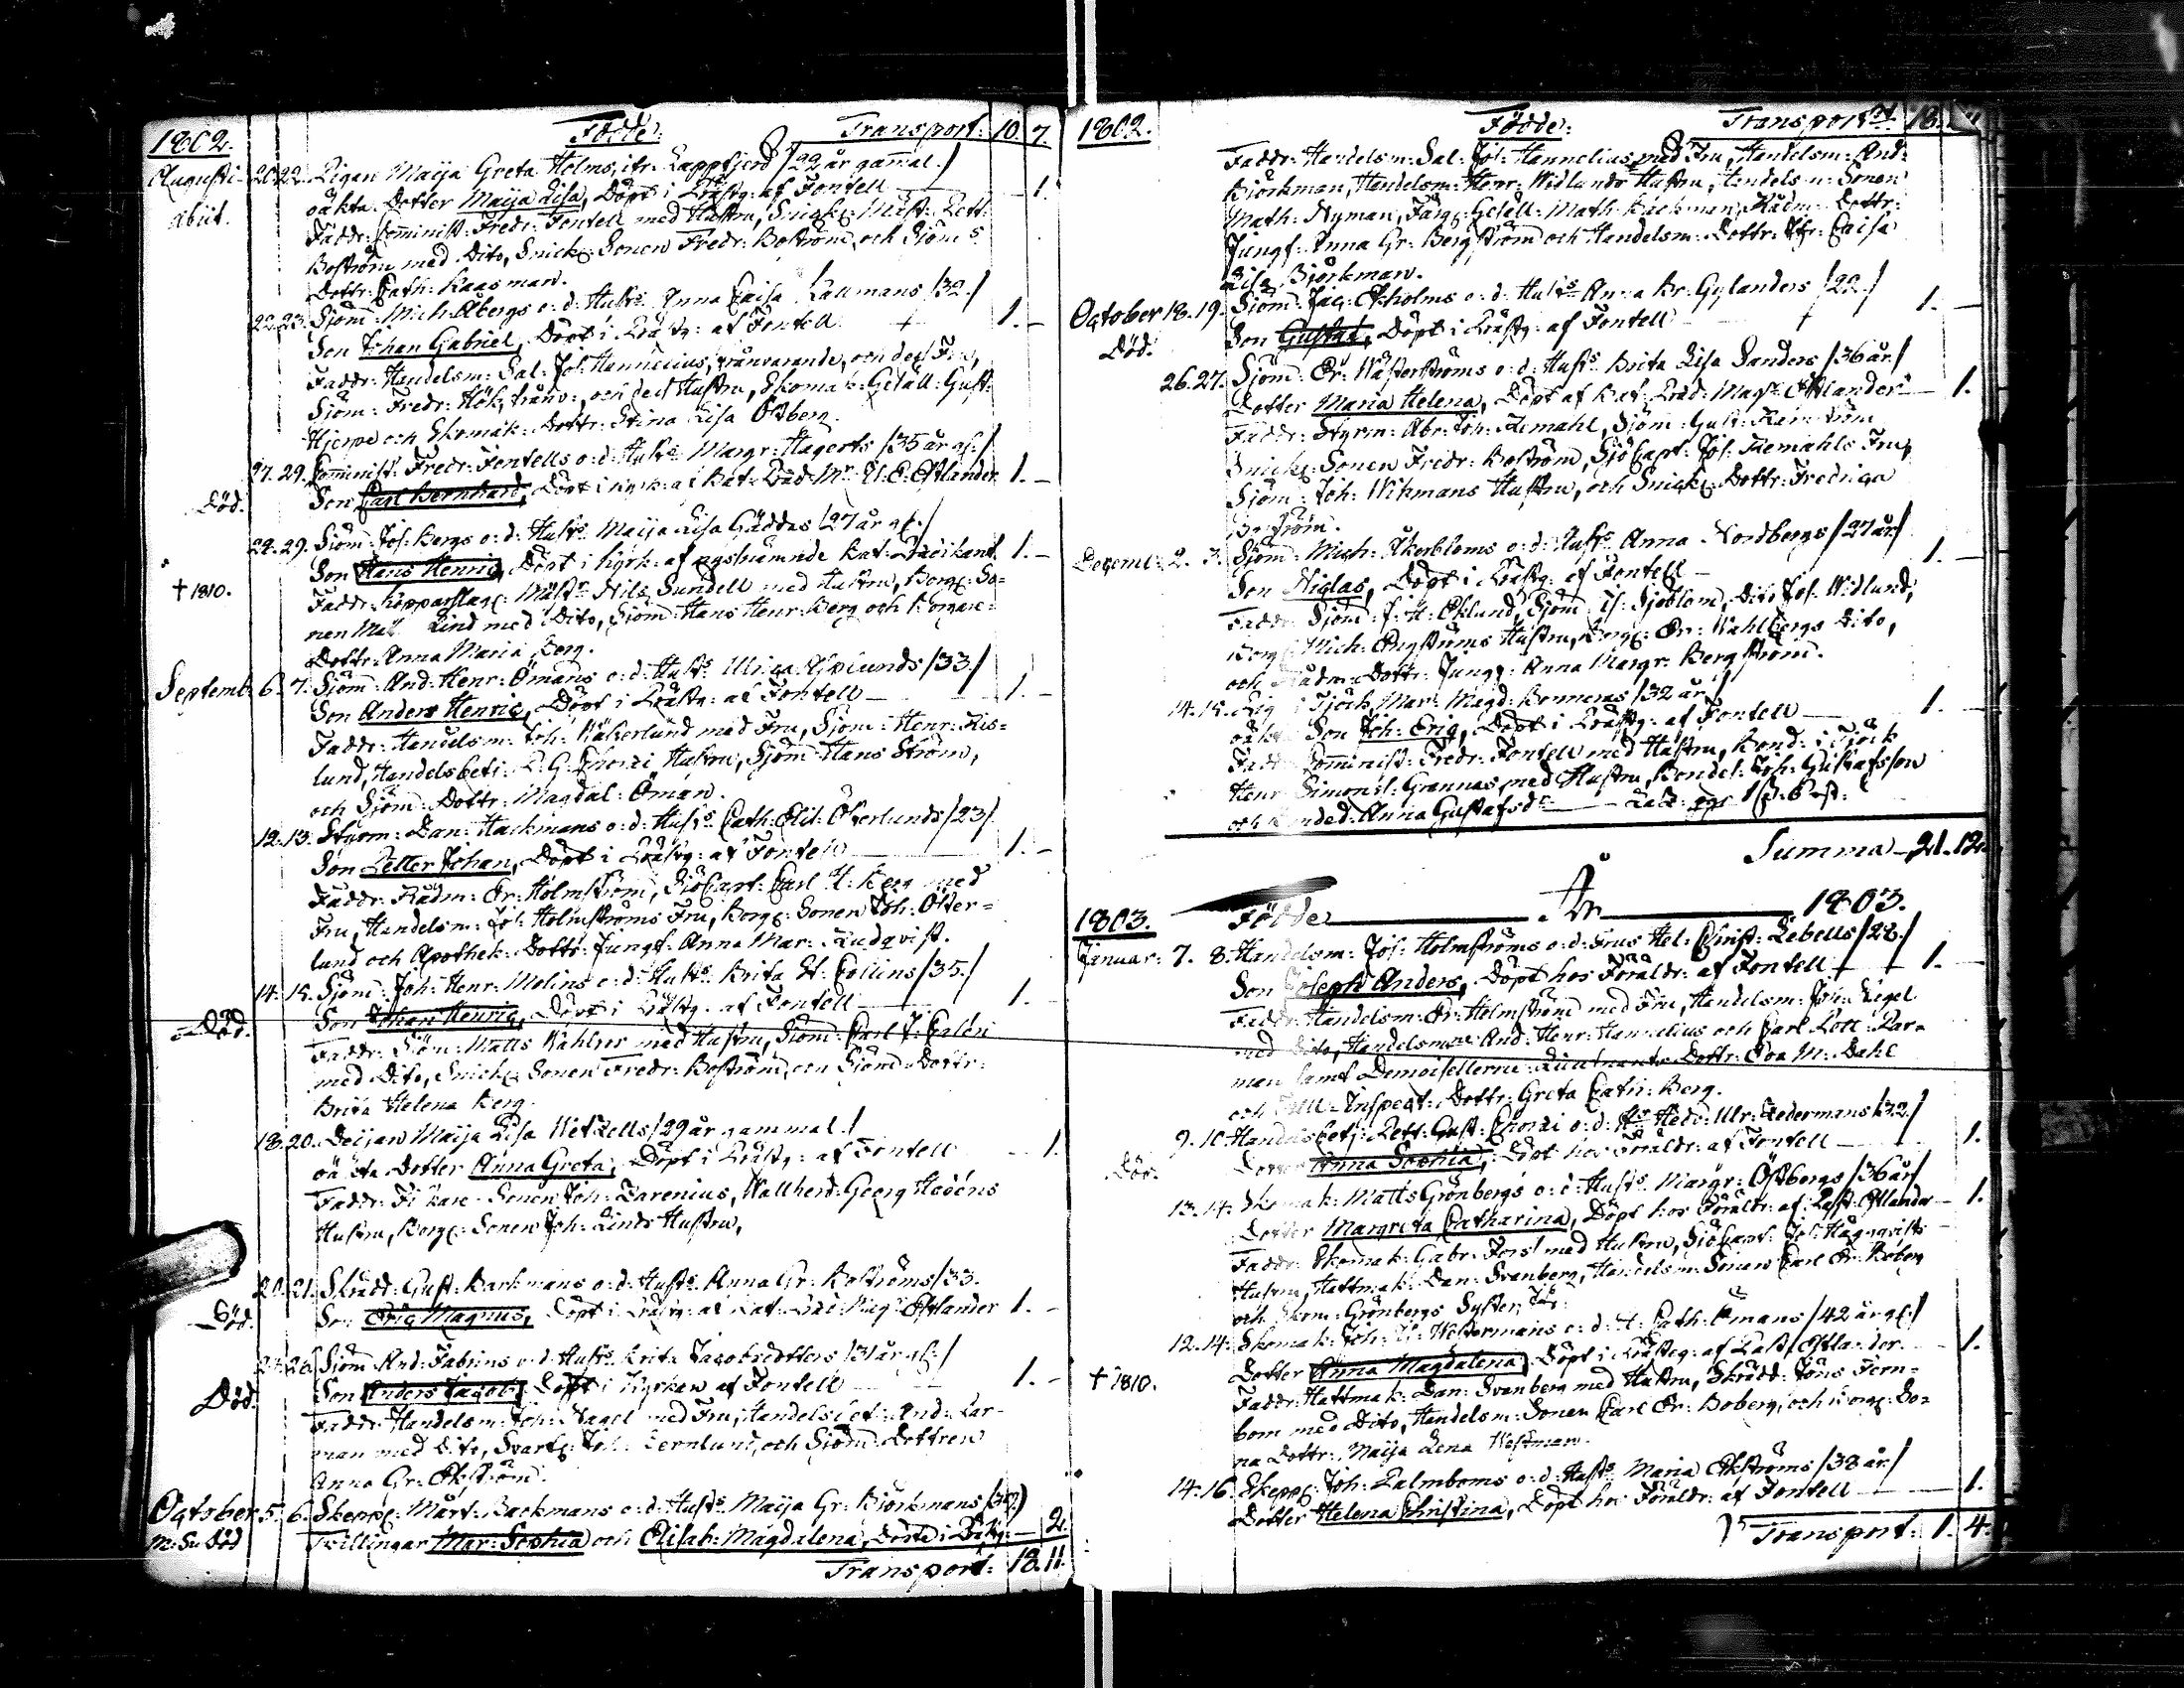 1802. Födde: Transport: 10. 7.
Augusti 20. 22. Pigan Maija Greta Holms, ifr. Lappfjerd /22 år gam̄al./
abiit. oäkta Dotter Maija Lisa, Döpt i Prästg: af Fontell 1.
Faddr: Com̄inist: Fredr: Fontell med Hustru, Snick: Mäst: Kett:
Boström med Dito, Snick: Sonen Fredr: Boström och Sjöm:s
Dottr: Cath: Kaasman.
22. 23. Sjöm: Mich: Åbergs o: d: Hustr:s Anna Caisa Kallmans /32./
Son Johan Gabriel, Döpt i Prästg: af Fontell 1. -
Faddr: Handelsm: Sal: Joh: Hannelius, frånvarande, och dess Fru,
Sjöm: Fredr: Höh, frånv:, och dess Hustru, Skomak: Gesäll: Gust:
Hjerpe och Skomak: Dottr: Stina Lisa Östberg.
27. 29. Com̄inist: Fredr: Fontells o: d: Hustr:s Margr: Hagerts /35 år gl:/
Död. Son Carl Bernhard, Döpt i Kyrk: af Kat: Präd: Mr: E: C: Estlander 1. -
28. 29. Sjöm: Joh: Bergs o: d: Hustr:s Maija Lisa Gäddas /27 år gl:/
Son Hans Henric, Döpt i Kyrk: af nysnämnde Kat: Prädikant 1. -
† 1810. Faddr: Kopparslag: Mäst:r Nils Sundell med Hustru, Borg: So-
nen Mat: Lind med Dito, Sjöm: Hans Henr: Berg och Borgare:
Dottr: Anna Maria Berg.
Septemb: 6. 7. Sjöm: And: Henr: Ömans o: d: Hust:s Ulrica Asplunds /33./
Son Anders Henric, Döpt i Prästg: af Fontell 1. -
Faddr: Handelsm: Joh: Wäkerlund med Fru, Sjöm: Henr: Fis-
lund, Handelsbetj: K: G: Choræi Hustru, Sjöm: Hans Ström,
och Sjöm: Dottr: Magdal: Öman.
12. 13. Styrm: Dan: Hackmans o: d: Hust:s Cath: Elis: Österlunds /23/
Son Petter Johan, Döpt i Prästg: af Fontell 1. -
Faddr: Rådm: Er: Holmström, Sjö Capt: Carl H: Berg med
Fru, Handelsm: Joh: Holmströms Fru, Borg: Sonen Joh: Öster-
lund och Apothek: Dottr: Jungf: Anna Mar: Rudqvist.
14. 15. Sjöm: Joh: Henr: Molins o: d: Hust:s Brita St: Collins /35./
Död. Son Johan Henric, Döpt i Prästg: af Fontell 1. -
Faddr: Sjöm: Matts Wahlroos med Hustru, Sjöm: Carl J: Calén
med Dito, Snick: Sonen Fredr: Boström, och Sjöm: Dottr:
Brita Helena Berg.
18. 20. Deijan Maija Lisa Wetzells /29 år gammal./
oäkta Dotter Anna Greta, Döpt i Prästg: af Fontell 1.
Faddr: Sonen Joh: Zarenius, Wallherd: Georg Hedéns
Hustru, Borg: Sonen Joh: Linds Hustru,
20. 21. Skrädd: Gust: Barkmans o: d: Hust:s Anna Gr: Boströms /33.
Död. Son Eric Magnus, Döpt i Prästg: af Kat: Präd: Mag:r Estlander 1. -
25. 26. Sjöm: And: Fabrins o: d: Hust:s Brita Jacobsdotters /31 år gl:/
Död. Son Anders Jacob, Döpt i Kyrkan af Fontell 1. -
Faddr: Handelsm: Joh: Nagel med Fru, Handelsbet: And: Par-
man med Dito, Svarf: Joh: Bernlund, och Sjöm: Dottren
Anna Gr: Ekström.
October 5. 6. Skepp: Mårt: Backmans o: d: Hust:s Maija Gr: Björkmans /32)
M: S: död Tvillingar Mar: Sophia och Elisab: Magdalena, Döpte i Prästg: 2.
Transport: 18. 11.
1802. Födde: Transport: 18. 11
Faddr: Handelsm: Sal: Joh: Hannelius med Fru, Handelsm: And:
Björkman, Handelsm: Henr: Widlunds Hustru, Handelsm: Sonen
Math: Nyman, Färg: Gesäll: Math: Backman, Rådm: Dottr:
Jungf: Anna Gr: Bergström och Handelsm: Dottr: Jfr: Caisa
Lisa Björkman.
October 18. 19. Sjöm: Jac: Ekholms o: d: Hust:s Anna Br: Gylanders /22/
Död. Son Gustaf, Döpt i Prästg: af Fontell 1. -
26. 27. Sjöm: Er: Wästerströms o: d: Hust:s Brita Lisa Sanders /36 år/
Dotter Maria Helena, Döpt af Kat: Präd: Mag:r Estlander 1.
Faddr: Styrm: Abr: Joh: Remahl, Sjöm: Gust:
Snick: Sonen Fredr: Boström, Sjö Capt: Joh: Remahls Fru,
Sjöm: Joh: Wikmans Hustru, och Snick: Dottr: Fredrica
Boström.
Decemb: 2. 3. Sjöm: Mich: Åkerbloms o: d: Hust:s Anna Nordbergs /27 år/
Son Niclas, Döpt i Prästg: af Fontell 1. -
Faddr: Sjöm: J: H: Eklund, Sjöm: Is: Sjöblom, Dito Joh: Widlund,
Borg: Mich: Engströms Hustru, Borg: Er: Wahlbergs Dito,
och Rådm: Dottr: Jungf: Anna Margr: Bergström.
14. 15. Pig: i Tjöck Mar: Magd: Bonneras /32 år/
oäkta Son Joh: Eric, Döpt i Prästg: af Fontell 1.
Faddr: Com̄inist: Fredr: Fontell med Hustru, Bond: i Tjöck
Henr: Simons: Grannas med Hustru, Bondes: Joh: Gustafsson
och Bonded: Anna Gustafsd:r
Summa 21. 12.
1803. Födde År 1803.
Januar: 7. 8. Handelsm: Joh: Holmströms o: d: Frus Hel: Christ: Lebells /28/
Son Joseph Anders, Döpt hos Föräldr: af Fontell 1. -
Faddr: Handelsm: Er: Holmström med Fru, Handelsm: Joh: Nagel
med Dito, Handelsmne And: Henr: Hannelius och Carl Kett: Par-
man samt Demoisellerne: Lieutnants Dottr: Eva M: Dahl
och Tull-Inspect: Dottr: Greta Cath: Berg.
9. 10. Handelsbetj: Kett: Gust: Choræi o: d: H:s Hedv: Ulr: Ledermans /32/
Död. Dotter Anna Sophia, Döpt hos Föräldr: af Fontell 1.
13. 14. Skomak: Matts Grönbergs o: d: Hust:s Margr: Östbergs /36 år/
Dotter Margreta Catharina, Döpt hos Föräldr: af Past: Estlander 1.
Faddr: Skomak: Gabr: Fors med Hustru, Sjö Capt: Joh: Häggqvists
Hustru, Hattmak: Dan: Svanberg, Handelsm: Sonen Carl Er: Boberg
och Skom: Grönbergs Syster,
12. 14. Skomak: Joh: Westermans o: d: H: Cath: Ömans /42 år gl:/
Dotter Anna Magdalena, Döpt i Prästg: af Past: Estlander 1.
† 1810. Faddr: Hattmak: Dan: Svanberg med Hustru, Skrädd: Jöns Fern-
bom med Dito, Handelsm: Sonen Carl Er: Boberg, och Borg: So-
na Dottr: Maija Lena Westman.
14. 16. Skepp: Joh: Palmboms o: d: Hust:s Maria Ekströms /38 år/
Dotter Helena Christina, Döpt hos Föräldr: af Fontell 1.
Transport: 1. 4.